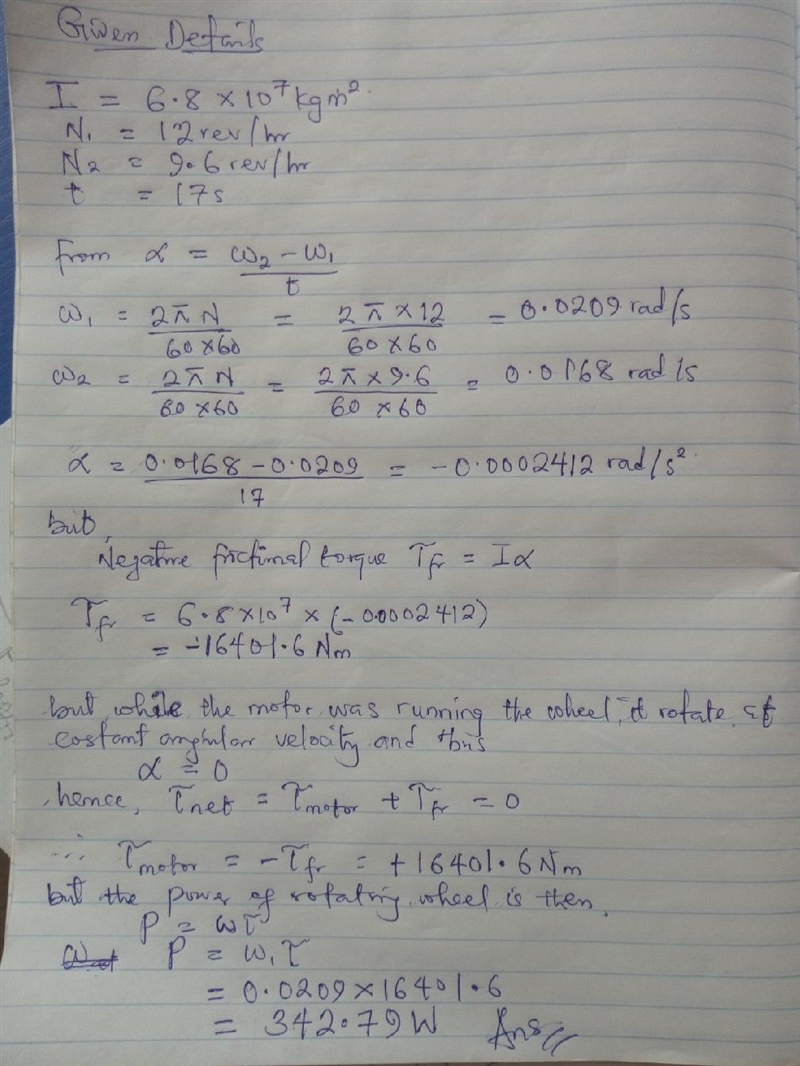 Given Details
I = 6.8 × 10⁷ kgm².
N₁ = 12 rev/hr
N₂ = 9.6 rev/hr
t = 17s
from α = (ω₂ − ω₁)/t
ω₁ = 2πN/(60×60) = 2π×12/(60×60) = 0.0209 rad/s
ω₂ = 2πN/(60×60) = 2π×9.6/(60×60) = 0.0168 rad/s
α = (0.0168 − 0.0209)/17 = −0.0002412 rad/s².
but,
Negative frictional torque τfr = Iα
τfr = 6.8×10⁷ × (−0.0002412)
= −16401.6 Nm
but while the motor was running the wheel, it rotate at
costant angular velocity and thus
α = 0
hence, τnet = τmotor + τfr = 0
∴ τmotor = −τfr = +16401.6 Nm
but the power of rotating wheel is then,
P = ωτ
P = ω₁τ
= 0.0209×16401.6
= 342.79W Ans